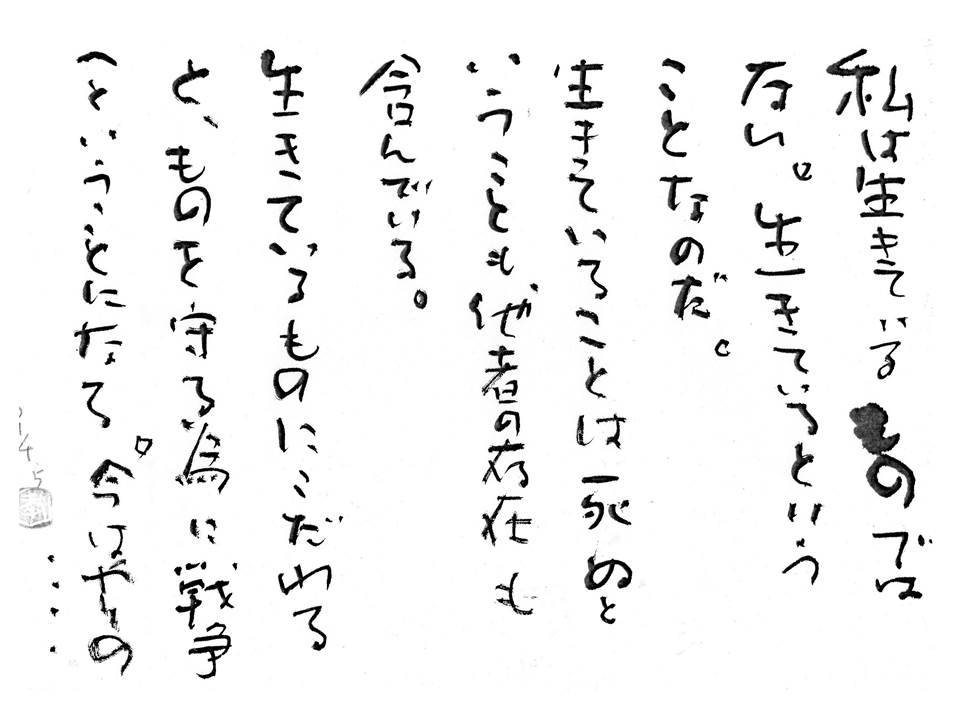 私は生きているものでは
ない。生きているという
ことなのだ。
生きていることは死ぬと
いうことも他者の存在も
含んでいる。
生きているものにこだわる
と、ものを守る為に戦争
へということになる。今はやりの
・・・・
'14.5